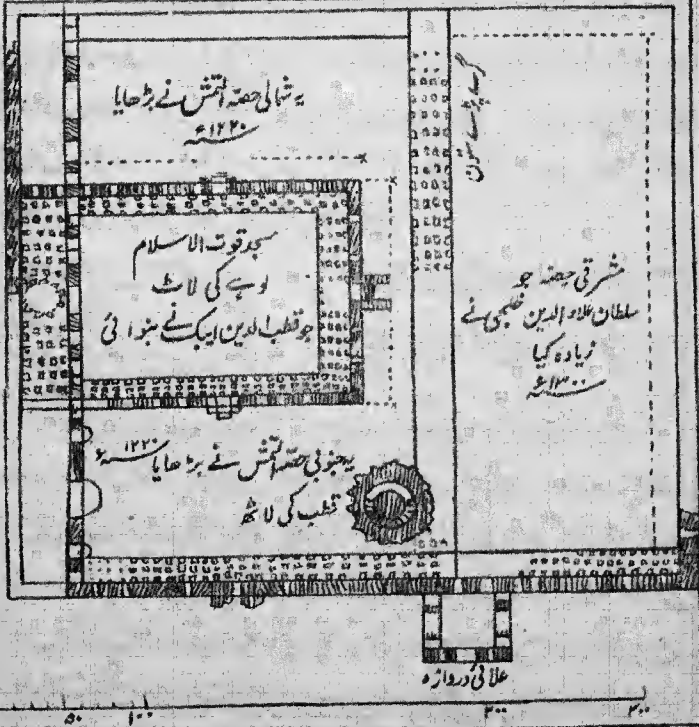 یہ شمالی حصہ التمش نے بڑھایا
۱۲۲۰ء
گرے پڑے ستون
مسجد قوت الاسلام
لوہے کی لاٹ
جو قطب الدین ایبک نے بنوائی
مشرقی حصہ جو
سلطان علاء الدین خلجی نے
زیادہ کیا
۱۳۰۰ء
یہ جنوبی حصہ التمش نے بڑھایا ۱۲۲۰ء
قطب کی لاٹھ
علائی دروازہ
۵۰ ۱۰۰ ۳۰۰ ۴۰۰